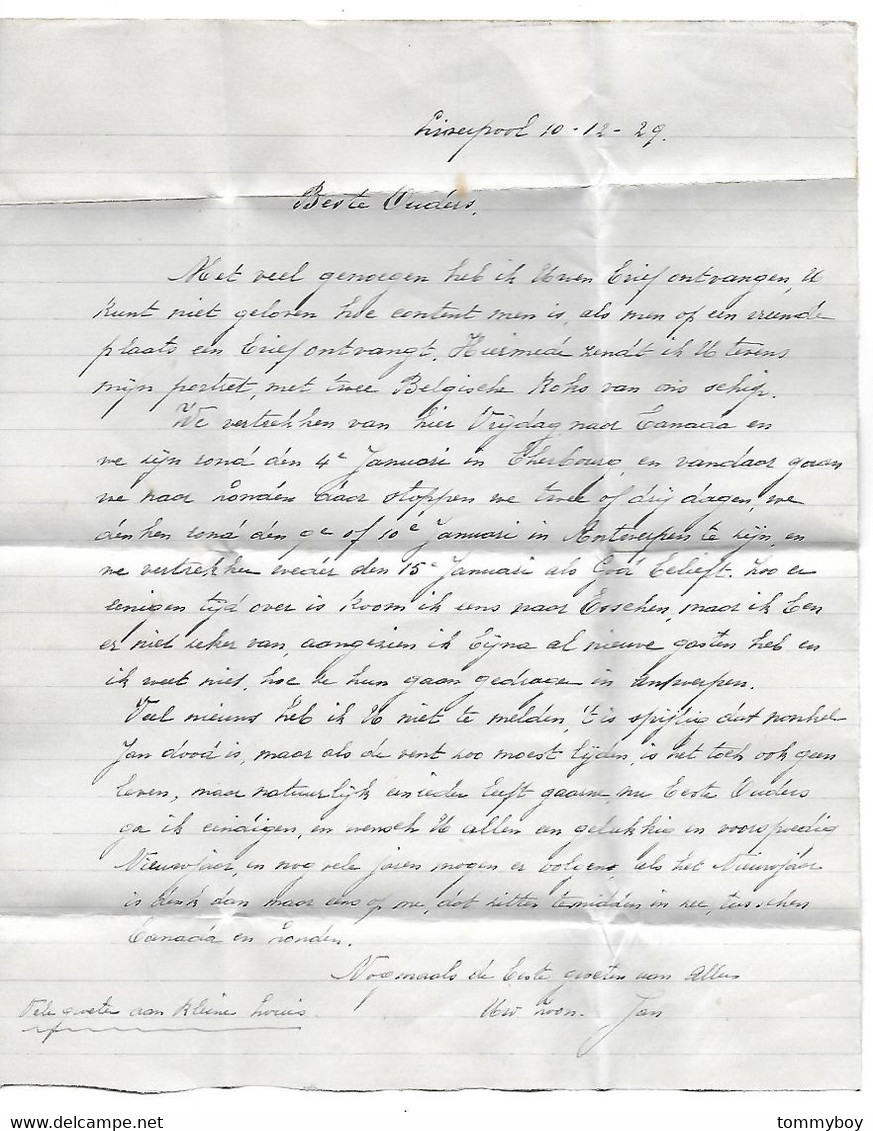 Liverpool 10-12-29.
Beste Ouders,
Met veel genoegen heb ik Uwen brief ontvangen, U
kunt niet geloven hoe content men is, als men op een vreemde
plaats een brief ontvangt. Hiermede zendt ik U tevens
mijn portret, met twee Belgische Koks van ons schip.
We vertrekken van hier Vrijdag naar Canada en
we zijn rond den 4e Januari in Cherbourg, en vandaar gaan
we naar Londen daar stoppen we twee of drij dagen, we
denken rond den 9e of 10e Januari in Antwerpen te zijn, en
we vertrekken weder den 15e Januari als God belieft. Zoo er
eenigen tijd over is koom ik eens naar Esschen, maar ik ben
er niet zeker van, aangezien ik bijna al nieuwe gasten heb en
ik weet niet, hoe ze hun gaan gedragen in Antwerpen.
Veel nieuws heb ik U niet te melden, 't is spijtig dat nonkel
Jan dood is, maar als de vent zoo moest lijden, is het toch ook geen
leven, maar natuurlijk een ieder leeft gaarne, nu beste Ouders
ga ik eindigen, en wensch U allen een gelukkig en voorspoedig
Nieuwjaar, en nog vele jaren mogen er volgen, als het Nieuwjaar
is denk dan maar eens op me, dat zitten temidden in zee, tusschen
Canada en Londen.
Nogmaals de beste groeten van allen
Vele groeten aan kleine Louis. Uw zoon. Jan
tommyboy